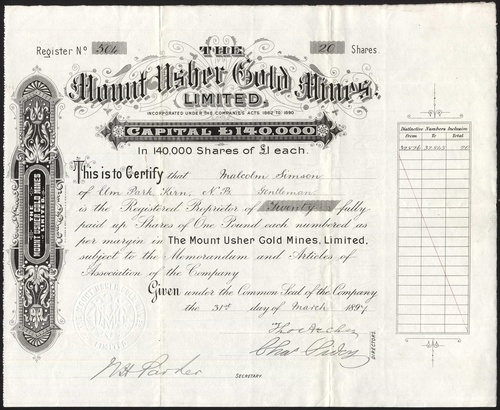 THE
Register No 504
20 Shares
Mount Usher Gold Mines,
LIMITED.
INCORPORATED UNDER THE COMPANIES ACTS, 1862 TO 1890.
CAPITAL £140,000
In 140,000 Shares of £1 each.
This is to Certify that Malcolm Simson
of Park N.B. Gentleman
is the Registered Proprietor of Twenty fully
paid up Shares of One Pound each numbered as
per margin in The Mount Usher Gold Mines, Limited,
subject to the Memorandum and Articles of
Association of the Company
Given under the Common Seal of the Company
the 31st day of March 1897
DIRECTORS
W H Parker
SECRETARY
Distinctive Numbers Inclusive
From To Total
20
THE MOUNT USHER GOLD MINES LIMITED